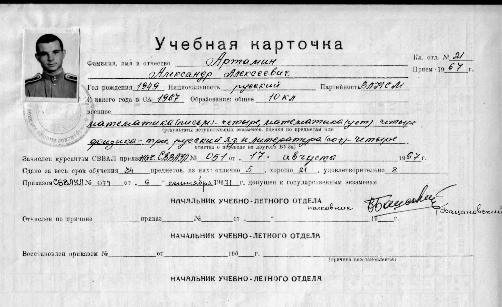 Учебная карточка
Кл. отд. № 21
Прием 1967 г.
Фамилия, имя и отчество Артамин
Александр Алексеевич
Год рождения 1949 Национальность русский Партийность ВЛКСМ
С какого года в СА 1967 Образование: общее 10 кл
военное
математика (письм)- четыре, математика (уст) четыре
физика- три, русский яз и литература четыре
Зачислен курсантом СВВАУЛ приказ № 051 от 17. августа 1967 г.
Сдано за весь срок обучения 34 предметов, из них: отлично 5, хорошо 21, удовлетворительно 8
Приказом СВВАУЛ № от 6 сентября 1971 г. допущен к государственным экзаменам
НАЧАЛЬНИК УЧЕБНО-ЛЕТНОГО ОТДЕЛА
полковник
Отчислен по причине приказ № от 17 г.
НАЧАЛЬНИК УЧЕБНО-ЛЕТНОГО ОТДЕЛА
Восстановлен приказом № от 196 г.
НАЧАЛЬНИК УЧЕБНО-ЛЕТНОГО ОТДЕЛА